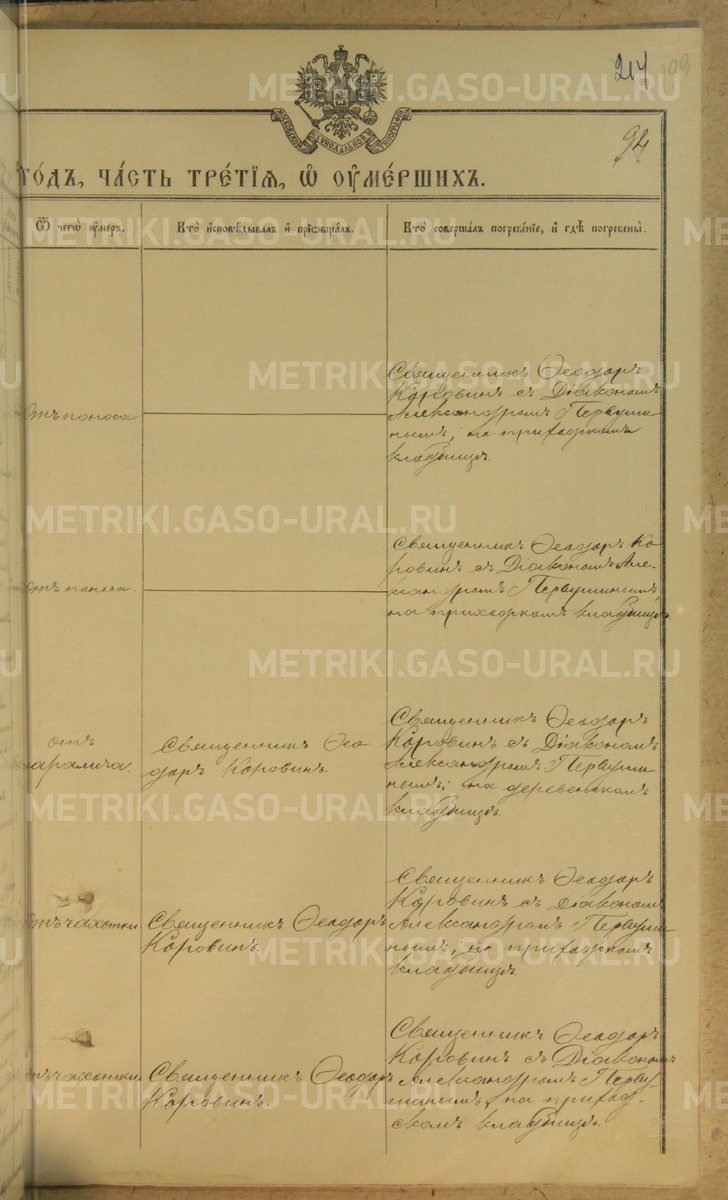 217 109
94
МОСКОВСКОЙ СѴНОДАЛЬНОЙ ТИПОГРАФІИ
ГО́ДЪ, ЧА́СТЬ ТРЕ́ТІЯ, Ѽ ОУ҆МЕ́РШИХЪ.
Ѿ чегѡ̀ оу҆́меръ.
Кто̀ и҆сповѣ́дывалъ и҆ прїѡбща́лъ.
Кто̀ соверша́лъ погребе́нїе, и҆ гдѣ̀ погребены̀.
Отъ поноса
Священникъ Ѳеодоръ
Коровинъ съ Діакономъ
Александромъ Первуши-
нымъ, на приходскомъ
кладбищѣ.
Отъ поноса
Священникъ Ѳеодоръ Ко-
ровинъ съ Діакономъ Але-
ксандромъ Первушинымъ,
на приходскомъ кладбищѣ
отъ
паралича.
Священникъ Ѳео-
доръ Коровинъ.
Священникъ Ѳеодоръ
Коровинъ съ Діакономъ
Александромъ Первуши-
нымъ, на деревенскомъ
кладбищѣ.
Отъ чахотки
Священникъ Ѳеодоръ
Коровинъ.
Священникъ Ѳеодоръ
Коровинъ съ Діакономъ
Александромъ Первуши-
нымъ, на приходскомъ
кладбищѣ.
Отъ чахотки
Священникъ Ѳеодоръ
Коровинъ.
Священникъ Ѳеодоръ
Коровинъ съ Діакономъ
Александромъ Перву-
шинымъ, на приход-
скомъ кладбищѣ.
METRIKI.GASO-URAL.RU
METRIKI.GASO-URAL.RU
METRIKI.GASO-URAL.RU
METRIKI.GASO-URAL.RU
METRIKI.GASO-URAL.RU
METRIKI.GASO-URAL.RU
METRIKI.GASO-URAL.RU
METRIKI.GASO-URAL.RU